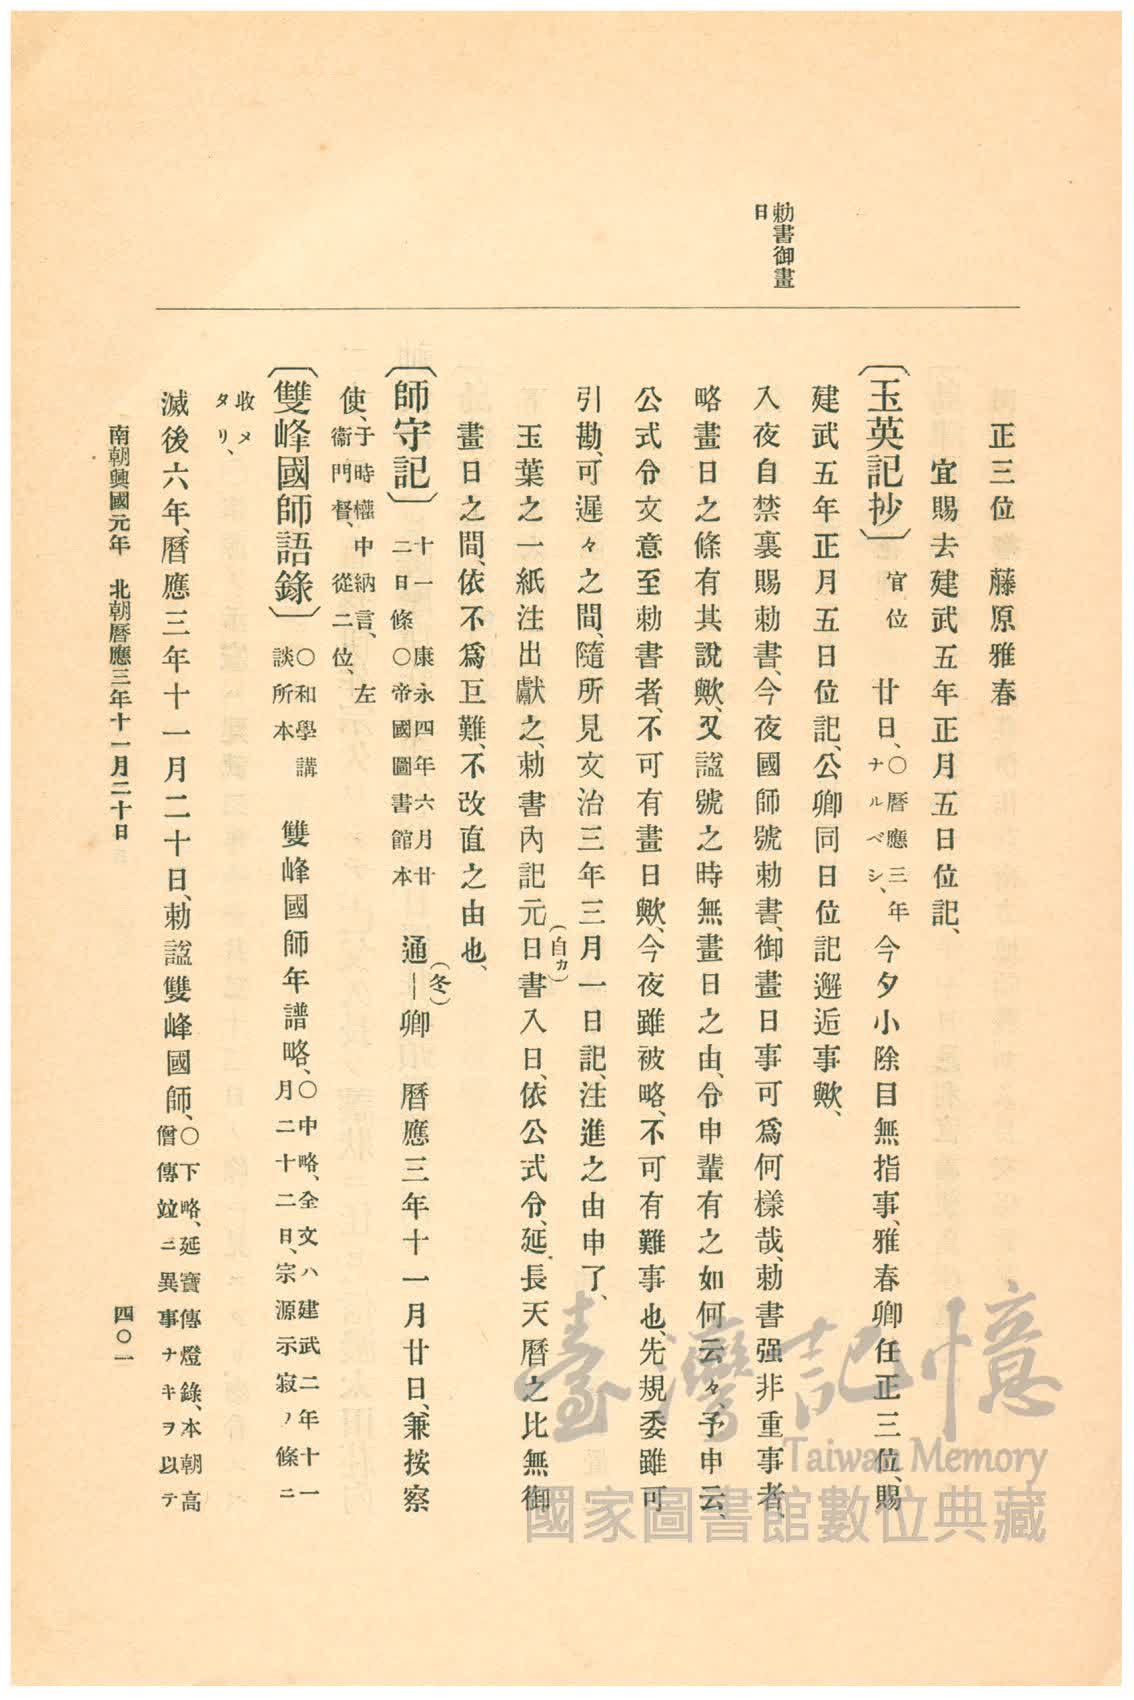 勅書御畫
日
正三位藤原雅春
宜賜去建武五年正月五日位記、
〔玉英記抄〕官位 廿日、○曆應三年ナルベシ、今夕小除目無指事、雅春卿任正三位、賜
建武五年正月五日位記、公卿同日位記邂逅事歟、
入夜自禁裏賜勅書、今夜國師號勅書、御畫日事可爲何樣哉、勅書强非重事者、
略畫日之條有其說歟、又諡號之時無畫日之由、令申輩有之如何云々、予申云、
公式令文意至勅書者、不可有畫日歟、今夜雖被略、不可有難事也、先規委雖可
引勘、可遲々之間、隨所見文治三年三月一日記、注進之由申了、
玉葉之一紙注出獻之、勅書內記元(自カ)日書入日、依公式令、延長天曆之比無御
畫日之間、依不爲巨難、不改直之由也、
〔師守記〕十一康永四年六月廿二日條○帝國圖書館本 通—(冬)卿 曆應三年十一月廿日、兼按察
使、于時權中納言、左衞門督、從二位、
〔雙峰國師語錄〕○和學講談所本 雙峰國師年譜略、○中略、全文ハ建武二年十一月二十二日、宗源示寂ノ條ニ
收メタリ、
滅後六年、曆應三年十一月二十日、勅諡雙峰國師、○下略、延寶傳燈錄、本朝高僧傳竝ニ異事ナキヲ以テ
南朝興國元年 北朝曆應三年十一月二十日
四〇一
臺灣記憶
Taiwan Memory
國家圖書館數位典藏